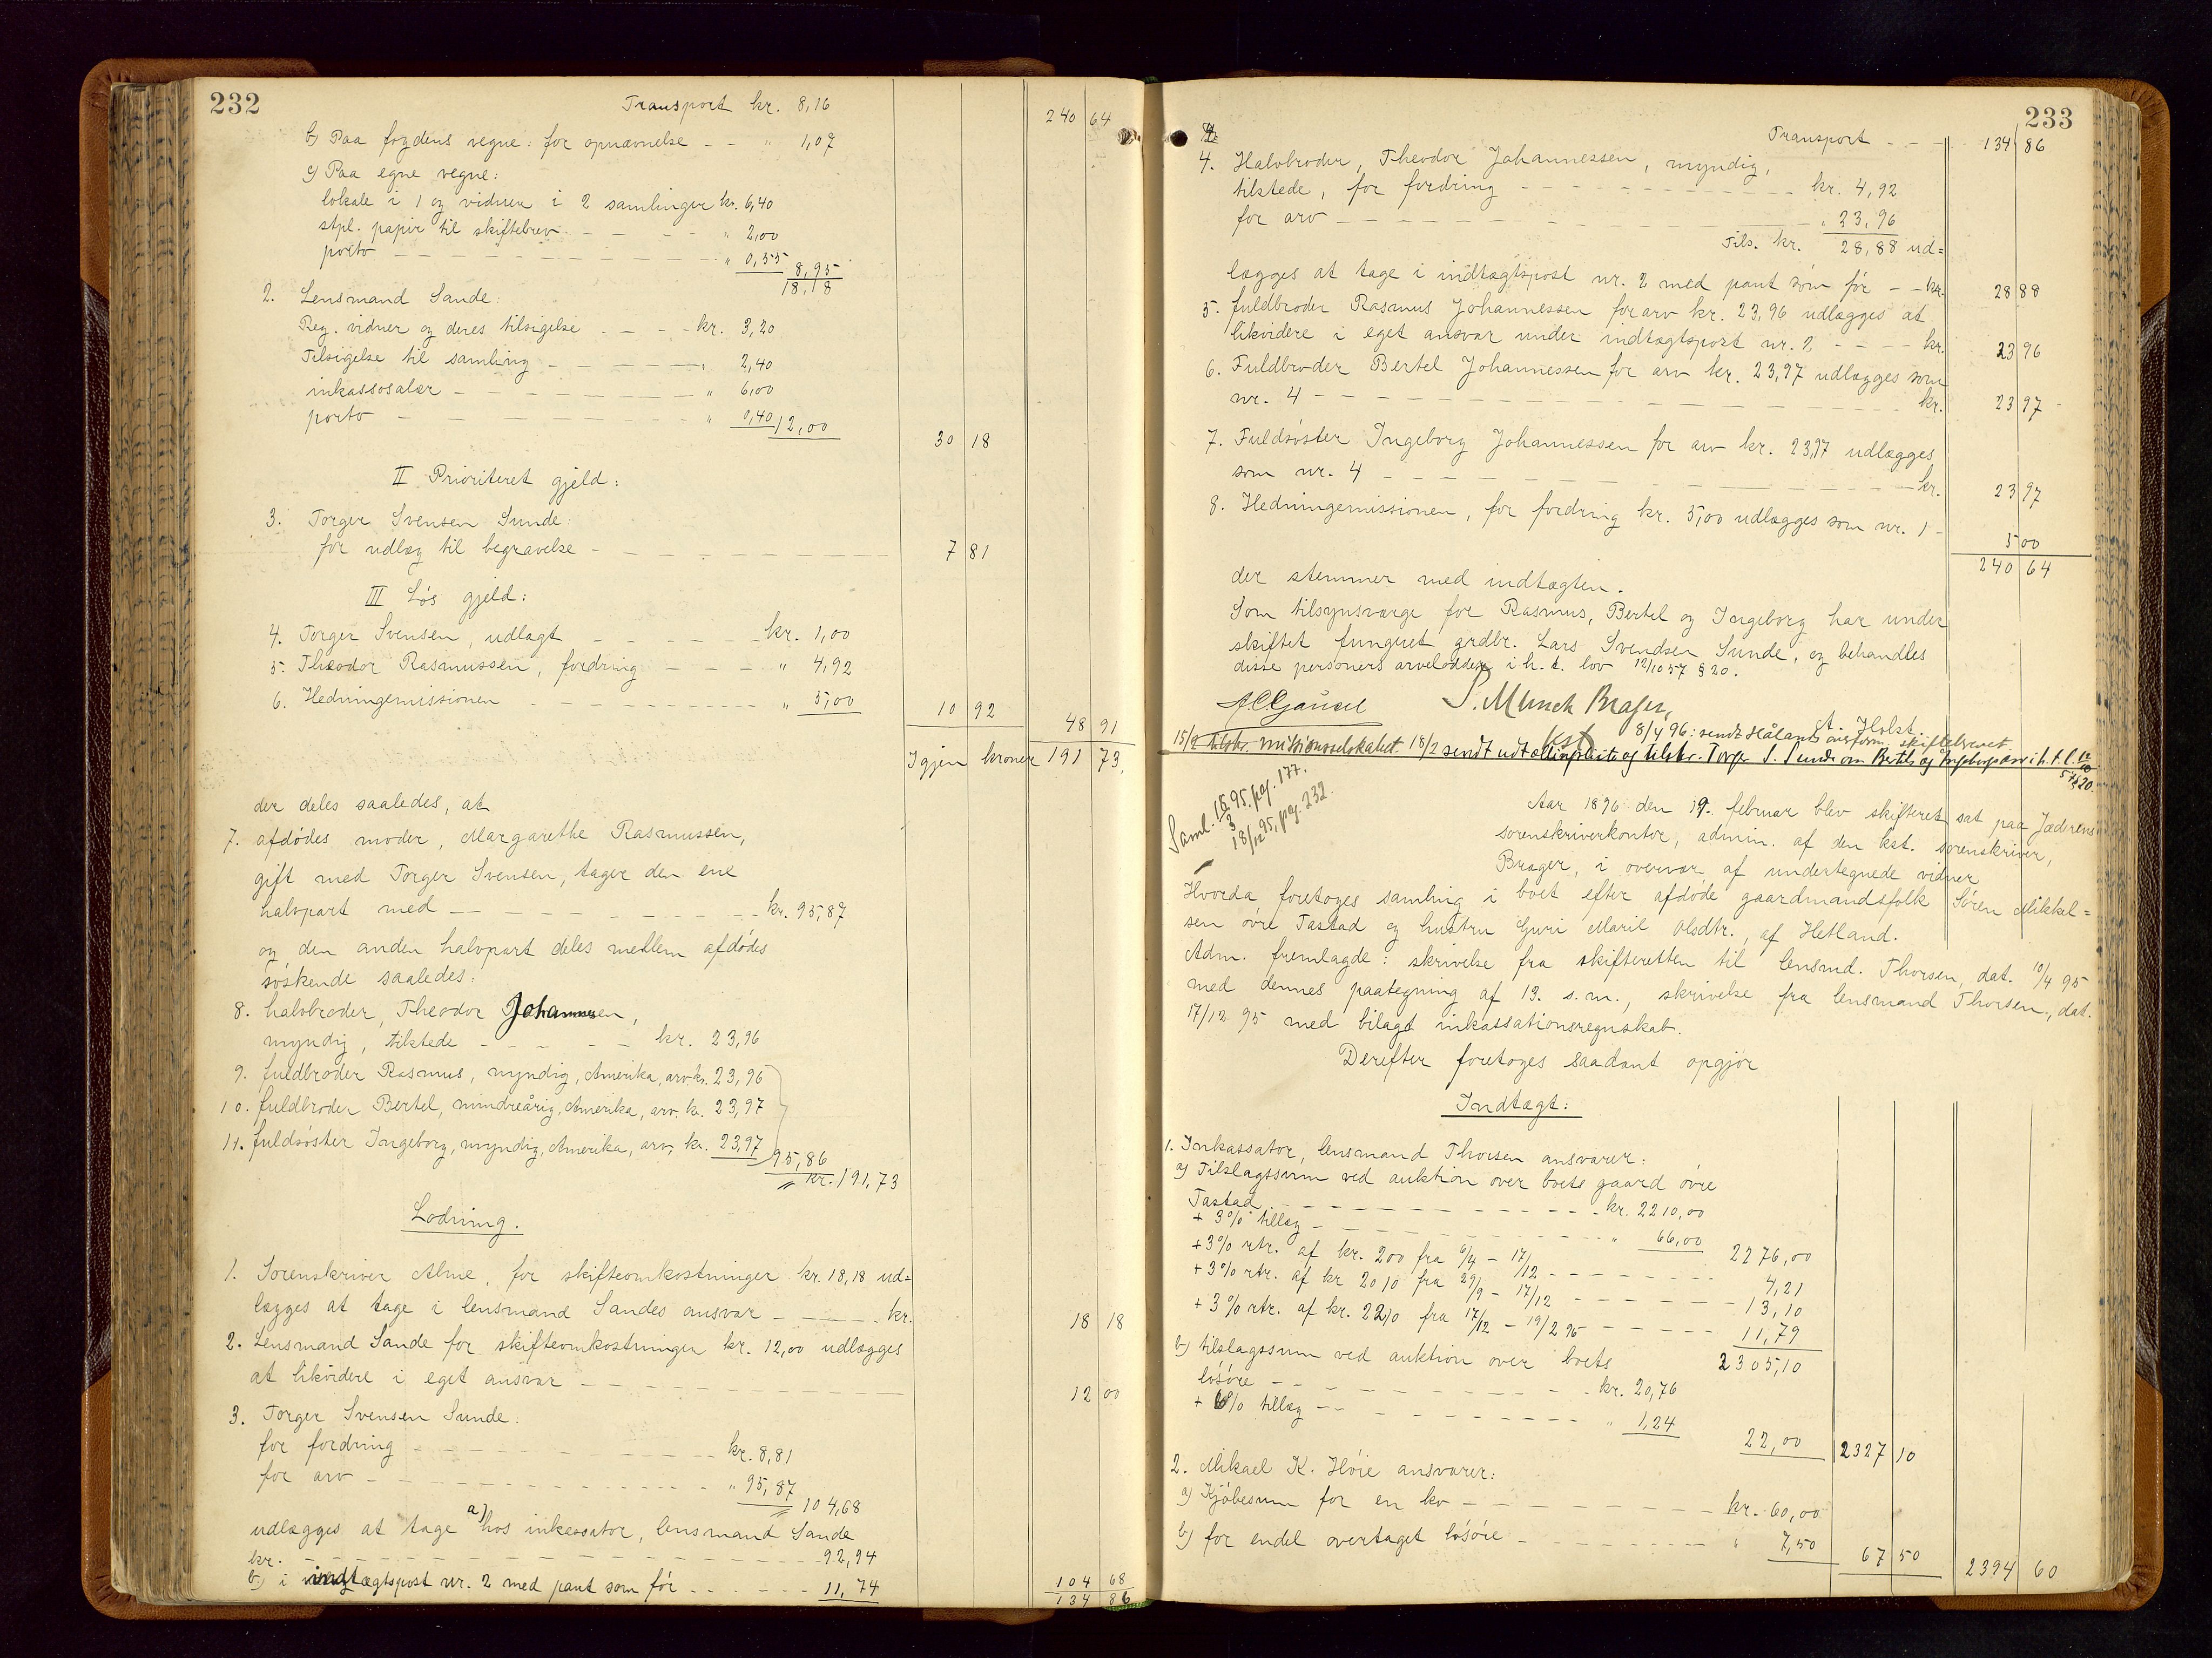 232
Transport kr. 8,16
240 64
b) Paa fogdens vegne: for opnævnelse - - " 1,07
c) Paa egne vegne:
lokale i 1 og vidner i 2 samlinger kr. 6,40
stpl. papir til skiftebrev - - - - " 2,00
porto - - - - - - - - " 0,55 8,95
18,18
2. Lensmand Sande:
Reg. vidner og deres tilsigelse - - - - kr. 3,20
Tilsigelse til samling - - - - - " 2,40
inkassosalær - - - - - - - " 6,00
porto - - - - - - " 0,40 12,00
30 18
II Prioriteret gjeld:
3. Torger Svensen Sunde:
for udlæg til begravelse - - - - - - - - 7 81
III Løs gjeld:
4. Torger Svensen, udlagt - - - - - kr. 1,00
5. Theodor Rasmussen, fordring - - - - " 4,92
6. Hedningemissionen - - - - - - - - " 5,00
10 92 48 91
Igjen kroner 191 73.
der deles saaledes, at
7. afdødes moder, Margarethe Rasmussen,
gift med Torger Svensen, tager den ene
halvpart med - - - - - - - - - kr. 95,87
og den anden halvpart deles mellem afdødes
søskende saaledes:
8. halvbroder, Theodor Johannessen,
myndig, tilstede - - - - - kr. 23,96
9. fuldbroder Rasmus, myndig, Amerika, arv kr. 23,96
10. fuldbroder Bertel, mindreårig, Amerika, arv. kr. 23,97
11. fuldsøster Ingeborg, myndig, Amerika, arv, kr. 23,97
95,86
kr. 191,73
Lodning.
1. Sorenskriver Alme, for skifteomkostninger kr. 18,18 ud=
lægges at tage i lensmand Sandes ansvar - - - - kr. 18 18
2. Lensmand Sande for skifteomkostninger kr. 12,00 udlægges
at likvidere i eget ansvar - - - - - - - - 12 00
3. Torger Svensen Sunde:
for fordring - - - - - - - - kr. 8,81
for arv - - - - - - - - - " 95,87
104,68
udlægges at tage a) hos inkassator, lensmand Sande
kr. - - - - - - - - - - - 92,94
b) i indtægtspost nr. 2 med pant som før - - - - - 11,74
104 68
134 86
233
Transport - - - 134 86
4. Halvbroder, Theodor Johannessen, myndig,
tilstede, for fordring - - - - - - - - - kr. 4,92
for arv - - - - - - - - - - " 23,96
Tils. kr. 28,88 ud=
lægges at tage i indtægtspost nr. 2 med pant som før - - kr. 28 88
5. fuldbroder Rasmus Johannessen for arv kr. 23,96 udlægges at
likvidere i eget ansvar under indtægtspost nr. 2 - - - - kr. 23 96
6. Fuldbroder Bertel Johannessen for arv kr. 23,97 udlægges som
nr. 4 - - - - - - - - - - - - kr. 23 97
7. Fuldsøster Ingeborg Johannessen for arv kr. 23,97 udlægges
som nr. 4 - - - - - - - - - - - kr. 23 97
8. Hedningemissionen, for fordring kr. 5,00 udlægges som nr. 1 - 5 00
240 64
der stemmer med indtægten.
Som tilsynsværge for Rasmus, Bertel og Ingeborg har under
skiftet fungeret grdbr. Lars Svendsen Sunde, og behandles
disse personers arvelodder i h. t. lov 12/10 57 § 20.
S. Munch Brager,
kst
A. Holst
8/4 96: sendt Hålands skiftebrevet
15/2 tilskr. missionsselskabet. 18/2 sendt udt. og tilskr. Torger S. Sunde om Bertels og Ingeborgs arv i h. t. l. 12/10
57 § 20.
Saml. 15/3 95. pag. 177.
18/12 95, pag. 232.
Aar 1896 den 19. februar blev skifteret sat paa Jæderens
sorenskriverkontor, admin. af den kst. sorenskriver,
Brager, i overvær af undertegnede vidner
Hvorda foretoges samling i boet efter afdøde gaardmandsfolk Søren Mikkel=
sen øvre Tastad og hustru Guri Maril Olsdtr., af Hetland.
Adm. fremlagde: skrivelse fra skifteretten til lensmd. Thorsen, dat. 10/4 95
med dennes paategning af 13. s. m., skrivelse fra lensmand Thorsen, dat.
17/12 95 med bilagt inkassationsregnskab.
Derefter foretoges saadant opgjør
Indtægt:
1. Inkassator, lensmand Thorsen ansvarer:
a) Tilslagssum ved auktion over boets gaard øvre
Tastad - - - - - - - - - - kr. 2210,00
+ 3% tillæg - - - - - - - - " 66,00 2276,00
+ 3% rtr. af kr. 200 fra 6/4 - 17/12 - - - - - - 4,21
+ 3% rtr. af kr 2010 fra 29/9 - 17/12 - - - - - - 13,10
+ 3% rtr. af kr. 2210 fra 17/12 - 19/2 96 - - - - - 11,79
2305,10
b) tilslagssum ved auktion over boets
løsøre - - - - - - - - - kr. 20,76
+ 6% tillæg - - - - - - - " 1,24
22,00 2327 10
2. Mikael K. Høie ansvarer:
a) Kjøbesum for en ko - - - - - - - - kr. 60,00
b) for endel overtaget løsøre - - - - - - - " 7,50 67 50 2394 60